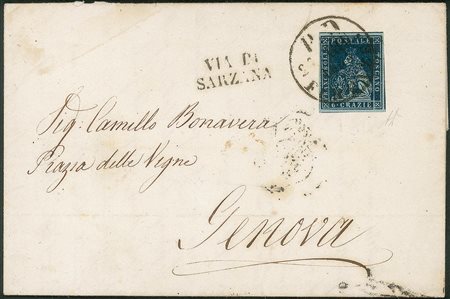 P.D
VIA DI
SARZANA
FRANCOBOLLO
POSTALE
TOSCANO
6 CRAZIE
Sig. Camillo Bonavera
Piazza delle Vigne
Genova